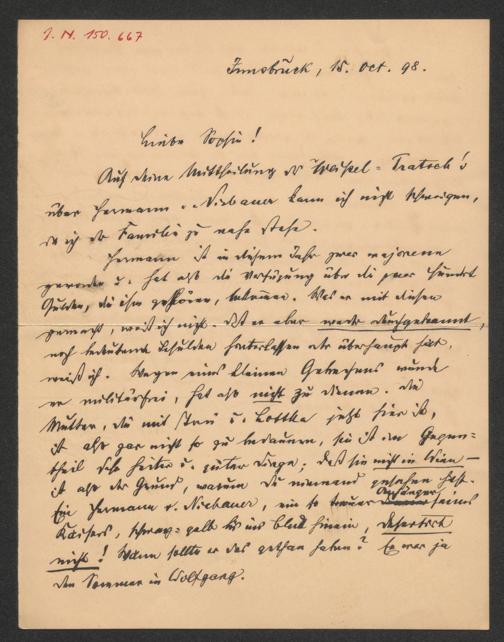 I. N. 150.667
Innsbruck, 15. Oct. 98.
Liebe Sophie!
Auf deine Mittheilung des Weißel-Tratsch's
über Hermann v. Niebauer kann ich nicht schweigen,
da ich der Familie zu nahe stehe.
Hermann ist in diesem Jahr zwar majorenn
geworden u. hat also die Verfügung über die paar hundert
Gulden, die ihm gehören, bekommen. Was er mit diesen
gemacht, weiß ich nicht. Daß er aber weder durchgebrannt,
noch bedeutende Schulden hinterlassen oder überhaupt hat,
weiß ich. Wegen eines kleinen Gebrechens wurde
er militärfrei, hat also nicht zu dienen. Die
Mutter, die mit u. Lottka jetzt hier ist,
ist also gar nicht so zu bedauern, sie ist im Gegen-
theil sehr heiter u. guter Dinge; daß sie nicht in Wien –
ist also der Grund, warum die niemand gesehen hat.
Ein Hermann v. Niebauer, ein so treuer Anhänger seines
Kaisers, schwarz-gelb bis ins Blut hinein, desertirt
nicht! Wann sollte er das gethan haben? Er war ja
den Sommer in Wolfgang.